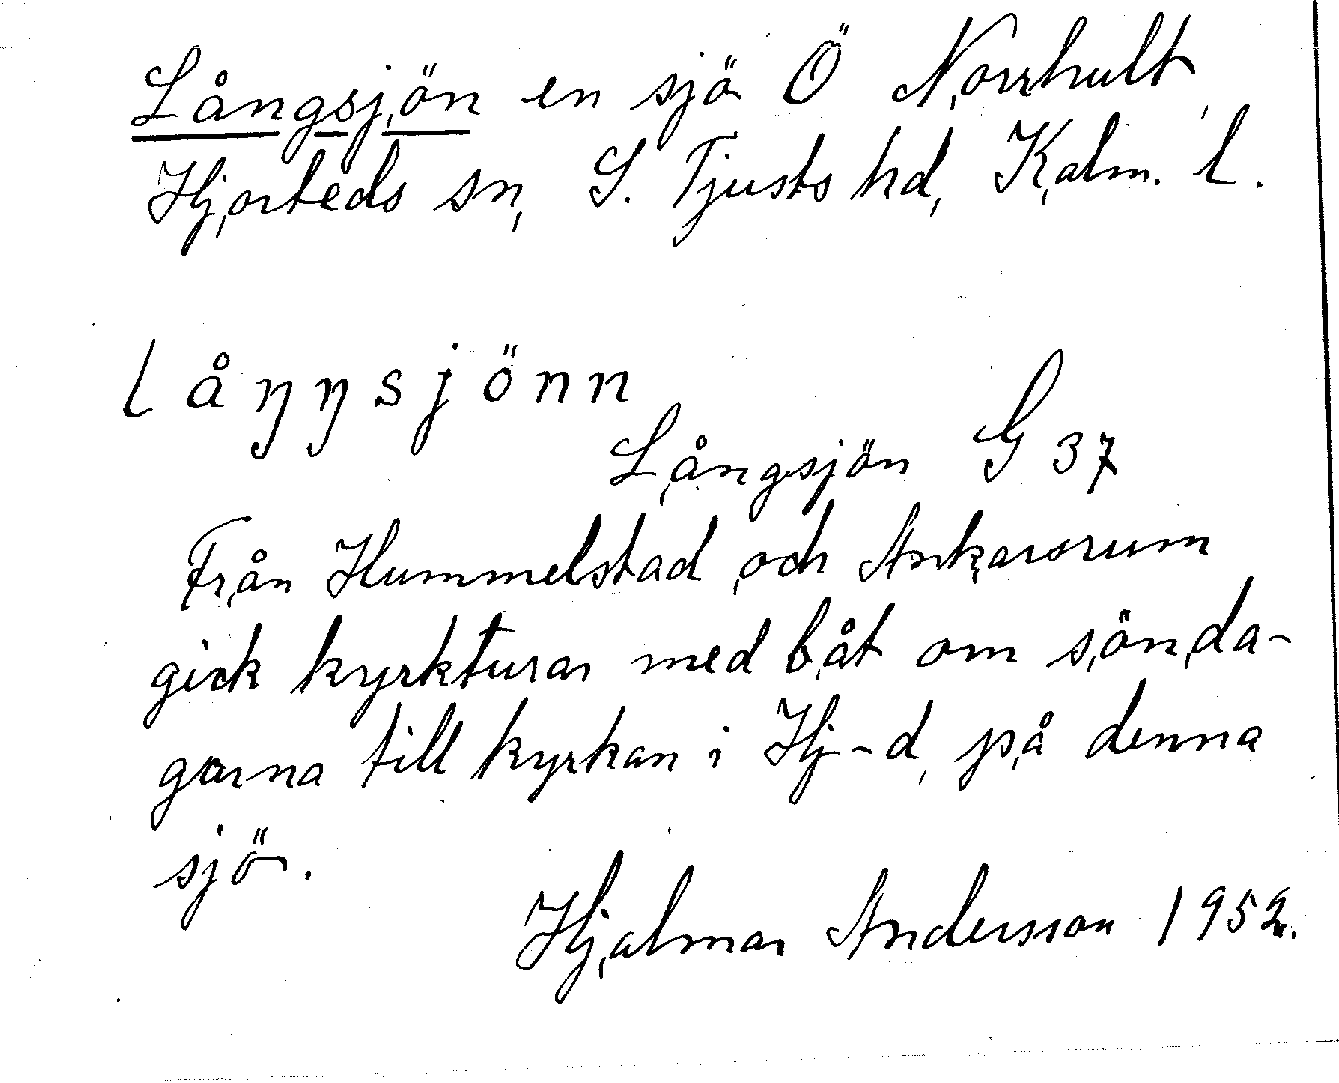 Långsjön en sjö Ö Norrhult,
Hjorteds sn, S. Tjusts hd, Kalm. l.
låŋŋsjönn
Långsjön G 37
Från Hummelstad och Ankarsrum
gick kyrkturar med båt om sönda-
garna till kyrkan i Hj-d, på denna
sjö.
Hjalmar Andersson 1952.